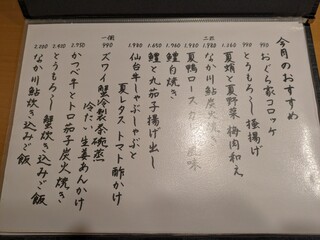 今月のおすすめ
990 おぐら家コロッケ
990 とうもろこし極揚げ
1.260 夏蛸と夏野菜 梅肉和え
1.980 なか川鮎炭火焼き
二匹
夏鴨ロース
1.960 鱧白焼き
1.650 鱧と丸茄子揚げ出し
1.980 仙台牛しゃぶしゃぶと
夏レタス トマト酢かけ
一個 990 ズワイ蟹冷製茶碗蒸
冷たい生姜あんかけ
2.950 かつべ牛とトロ茄子炭火焼き
2.400 とうもろこし 蟹炊き込みご飯
2.200 なか川鮎炊き込みご飯